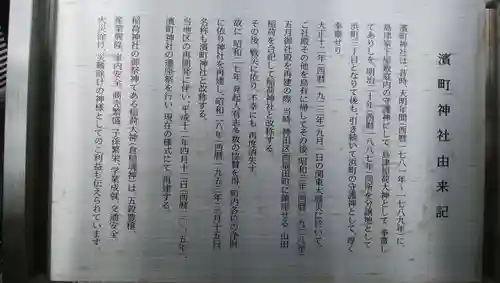 濱町神社由来記
濱町神社は、昔時、天明年間(西暦一七八一年〜一七八九年)に、
島津家下屋敷庭内の守護神にして、島津稲荷大神として奉斎し
てありしを、明治二十年(西暦一八八七年)同所を分譲地として
浜町三丁目となりて後も、引き続いて浜町の守護神として、厚く
奉斎せり。
大正十二年(西暦一九二三年)九月一日の関東大震災に於いて、
ご社殿その他を烏有に帰してその後、昭和三年(西暦一九二八年)
五月御社殿を再建の際、当時、神田区西福田町に鎮座せる
稲荷を合祀して稲荷神社と改称する。
その後、戦災に依り、不幸にも再度消失す。
故に、昭和二七年、発起人有志多数の協賛を得、町内各位の浄財
に依り神社を再建し、昭和二八年(西暦一九五三年)三月十五日
名称も濱町神社と改称する。
当地区の再開発に伴い、平成十七年四月十二日(西暦二〇〇五年)、
濱町神社の遷座祭を行い、現在の様式にて再建する。
稲荷神社の御祭神である稲荷大神(倉稲魂神)は、五穀豊穣、
産業興隆、家内安全、商売繁盛、子孫繁栄、学業成就、交通安全、
火災除け、災難除けの神様としてのご利益も伝えられています。